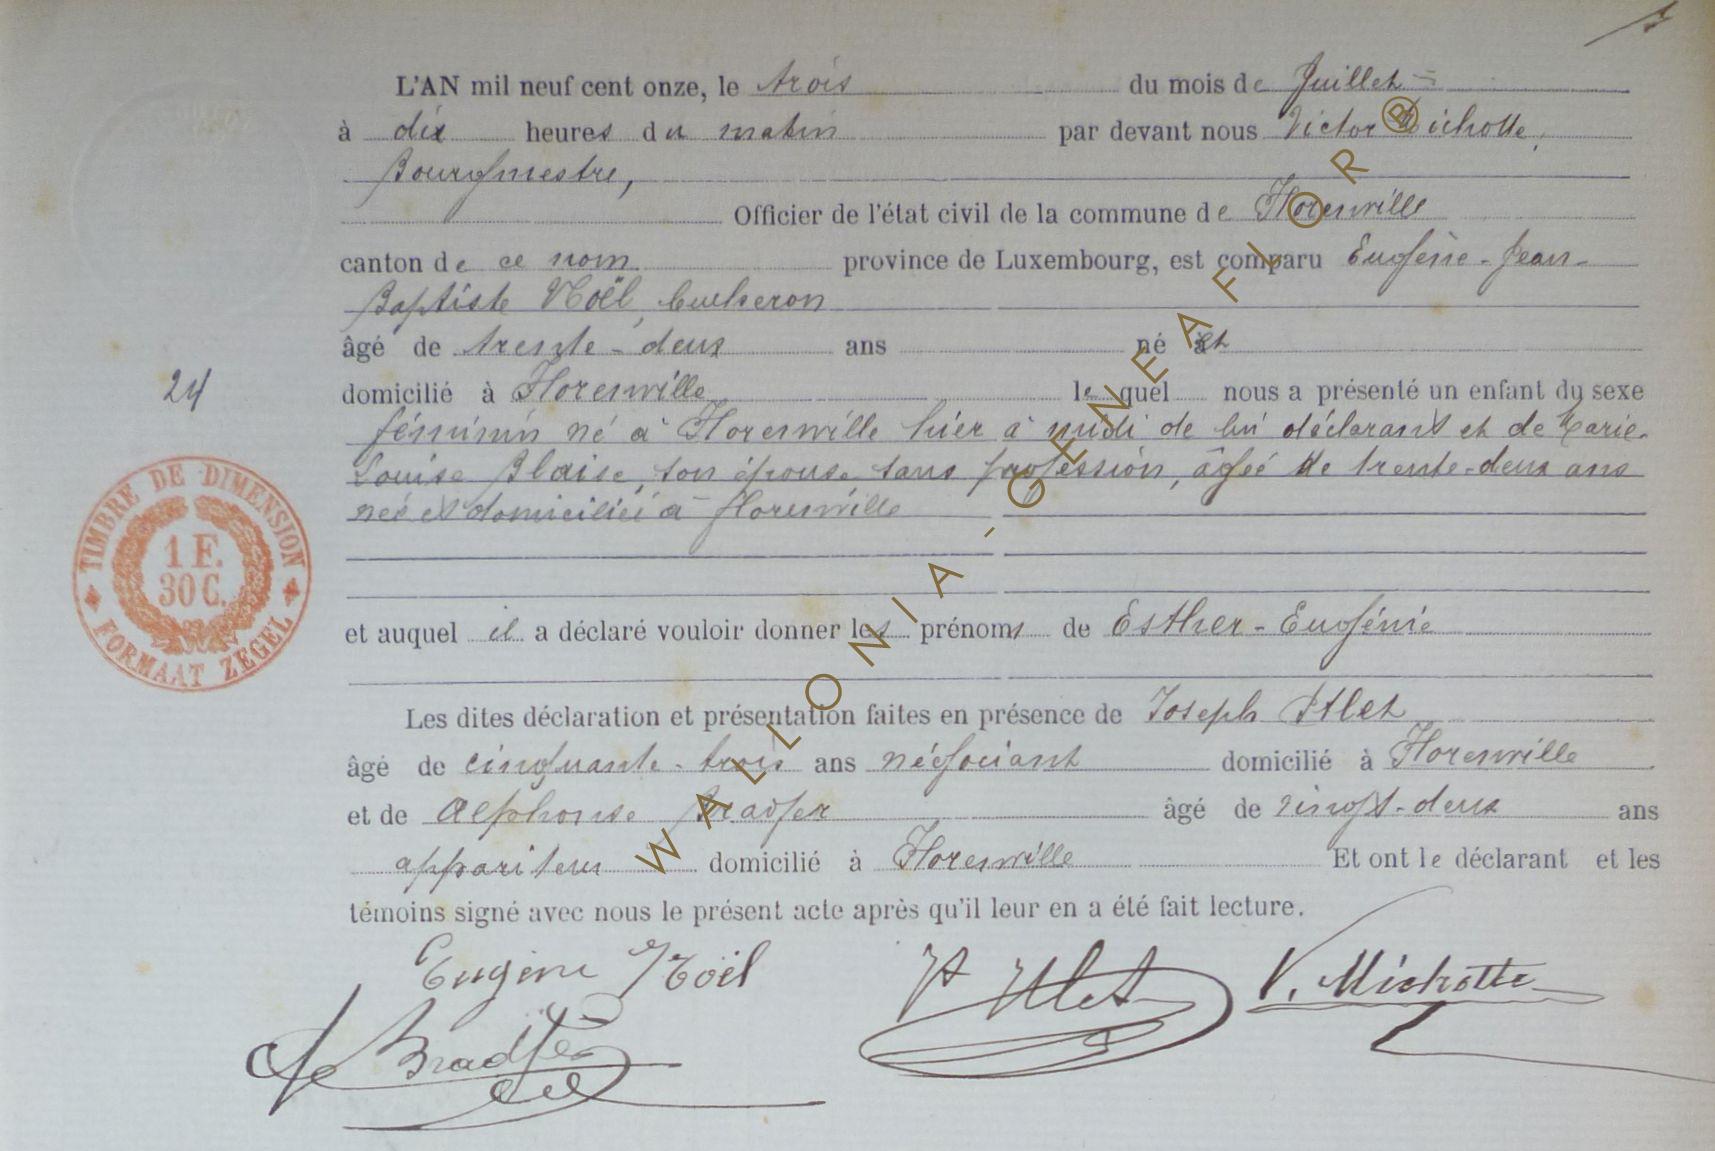 L'AN mil neuf cent onze, le trois du mois de Juillet
à dix heures du matin par devant nous Victor Michotte,
Bourgmestre,
Officier de l'état civil de la commune de Florenville
canton de ce nom province de Luxembourg, est comparu Eugène-Jean-
Baptiste Noël, bucheron
âgé de trente-deux ans né et
24
domicilié à Florenville lequel nous a présenté un enfant du sexe
féminin né à Florenville hier à midi de lui déclarant et de Marie-
Louise Blaise, son épouse, sans profession, âgée de trente-deux ans
nés et domiciliés à Florenville
TIMBRE DE DIMENSION
1 F.
30 C.
FORMAAT ZEGEL
et auquel il a déclaré vouloir donner les prénoms de Esther-Eugénie
Les dites déclaration et présentation faites en présence de Joseph Itlet
âgé de cinquante-trois ans négociant domicilié à Florenville
et de Alphonse Bradfer âgé de vingt-deux ans
appariteur domicilié à Florenville Et ont le déclarant et les
témoins signé avec nous le présent acte après qu'il leur en a été fait lecture.
Eugène Noël
Itlet
V. Michotte
Bradfer
WALLONIA-GENEAFLOR®